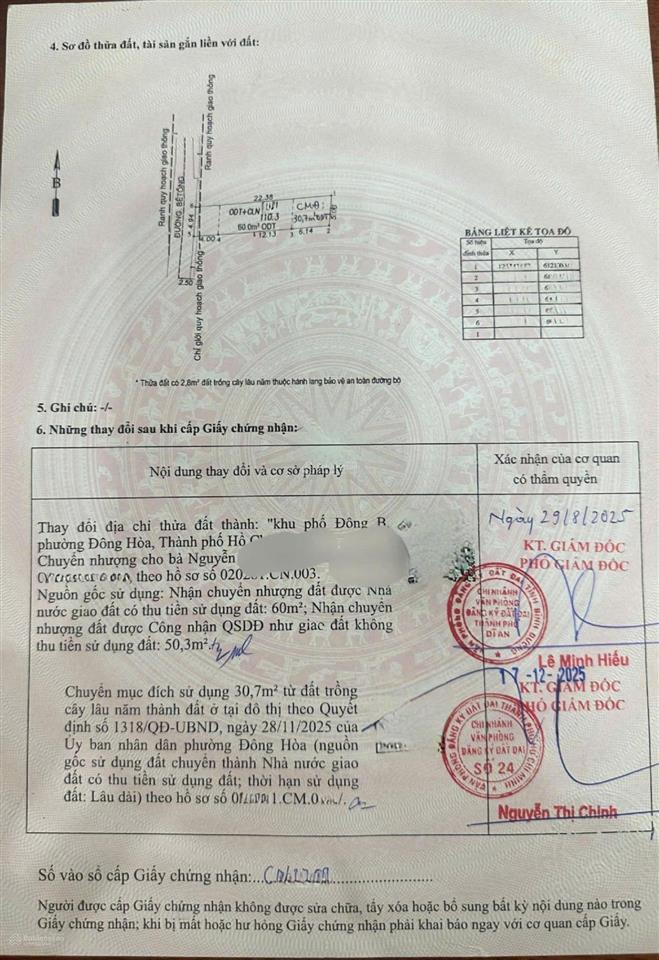 4. Sơ đồ thửa đất, tài sản gắn liền với đất:
Ranh quy hoạch giao thông
Ranh quy hoạch giao thông
B
ĐƯỜNG BÊTÔNG
Chỉ giới quy hoạch giao thông
22.38
ODT+CLN
110.3
60.0m² ODT
CMĐ:
30,7m² ODT
4.94
4.00
12.13
6.14
2.50
BẢNG LIỆT KÊ TỌA ĐỘ
Số hiệu đỉnh thửa
Tọa độ
X Y
1
2
3
4
5
6
1
* Thửa đất có 2,8m² đất trồng cây lâu năm thuộc hành lang bảo vệ an toàn đường bộ
5. Ghi chú: -/-
6. Những thay đổi sau khi cấp Giấy chứng nhận:
Nội dung thay đổi và cơ sở pháp lý
Xác nhận của cơ quan
có thẩm quyền
Thay đổi địa chỉ thửa đất thành: "khu phố Đông
phường Đông Hòa, Thành phố Hồ
Chuyển nhượng cho bà Nguyễn
theo hồ sơ số
Nguồn gốc sử dụng: Nhận chuyển nhượng đất được Nhà
nước giao đất có thu tiền sử dụng đất: 60m²; Nhận chuyển
nhượng đất được Công nhận QSDĐ như giao đất không
thu tiền sử dụng đất: 50,3m².
Ngày 29/8/2025
KT. GIÁM ĐỐC
PHÓ GIÁM ĐỐC
VĂN PHÒNG ĐĂNG KÝ ĐẤT ĐAI TỈNH BÌNH DƯƠNG
CHI NHÁNH
VĂN PHÒNG
ĐĂNG KÝ ĐẤT ĐAI
THÀNH PHỐ
DĨ AN
Lê Minh Hiếu
Chuyển mục đích sử dụng 30,7m² từ đất trồng
cây lâu năm thành đất ở tại đô thị theo Quyết
định số 1318/QĐ-UBND, ngày 28/11/2025 của
Ủy ban nhân dân phường Đông Hòa (nguồn
gốc sử dụng đất chuyển thành Nhà nước giao
đất có thu tiền sử dụng đất; thời hạn sử dụng
đất: Lâu dài) theo hồ sơ số
17-12-2025
KT. GIÁM ĐỐC
PHÓ GIÁM ĐỐC
VĂN PHÒNG ĐĂNG KÝ ĐẤT ĐAI THÀNH PHỐ HỒ CHÍ MINH
CHI NHÁNH
VĂN PHÒNG
ĐĂNG KÝ ĐẤT ĐAI
SỐ 24
Nguyễn Thị Chinh
Số vào sổ cấp Giấy chứng nhận:
Người được cấp Giấy chứng nhận không được sửa chữa, tẩy xóa hoặc bổ sung bất kỳ nội dung nào trong
Giấy chứng nhận; khi bị mất hoặc hư hỏng Giấy chứng nhận phải khai báo ngay với cơ quan cấp Giấy.